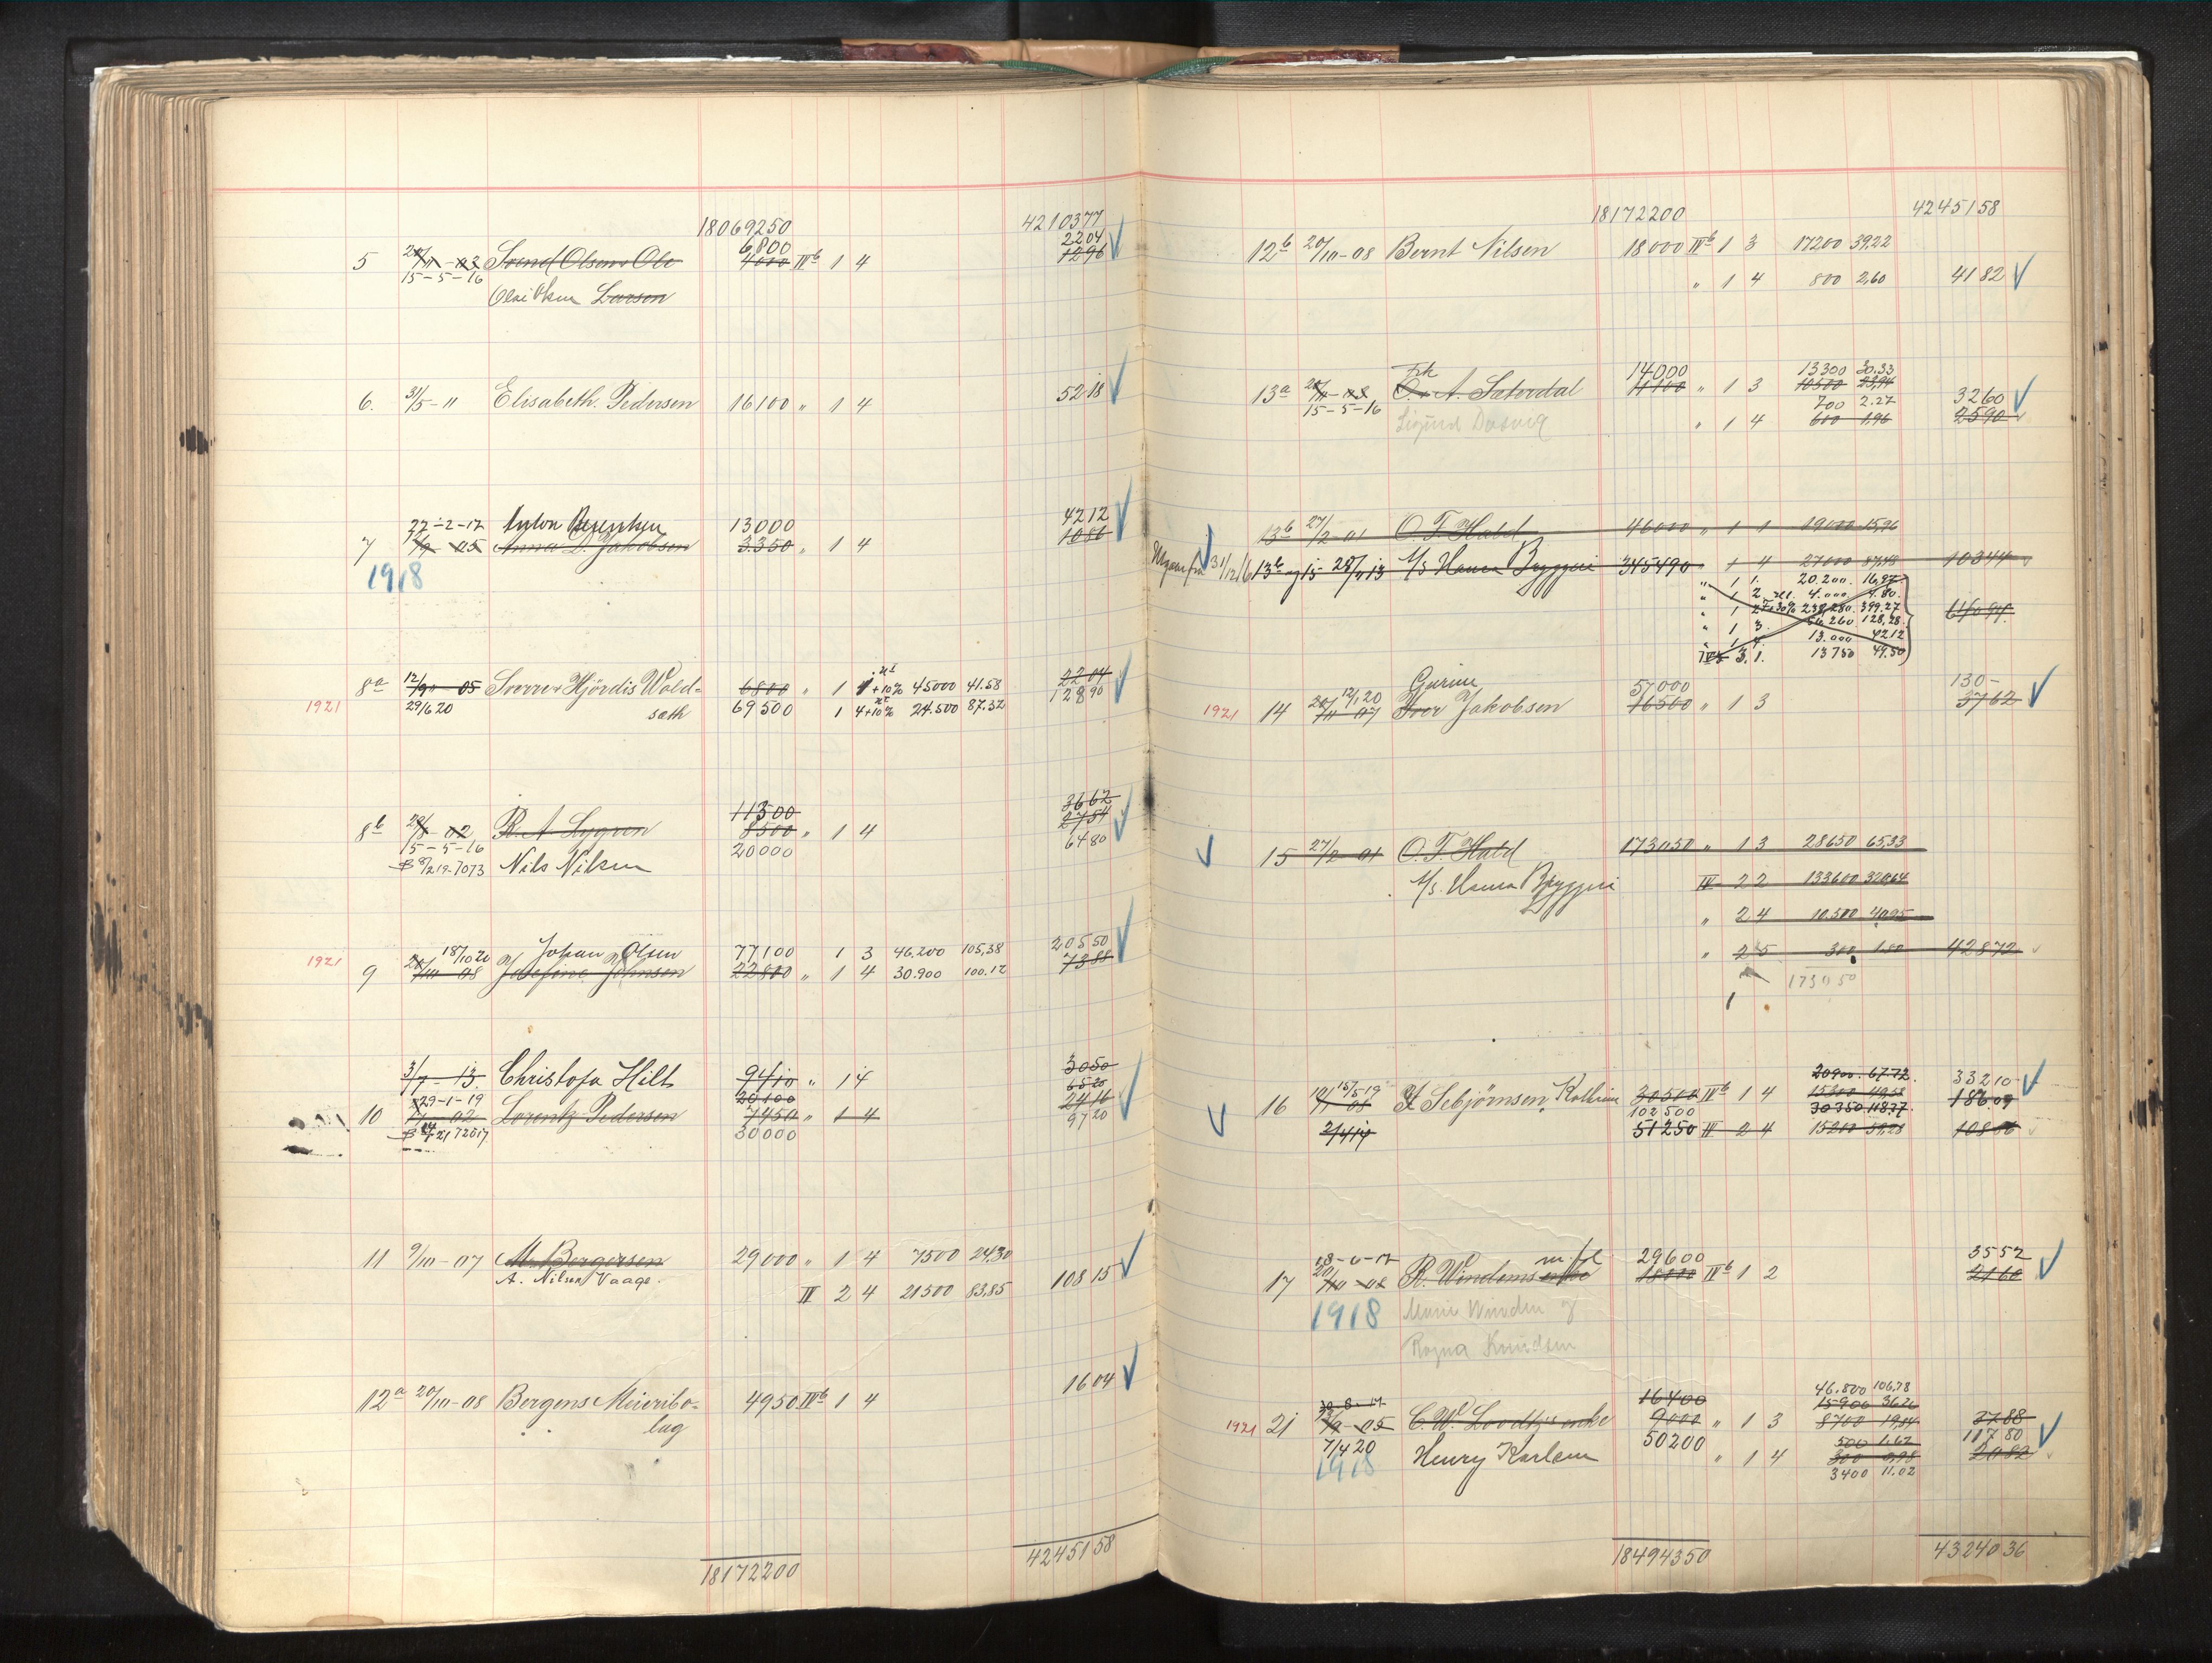 18069250 4210377
6800 2204
5 20/11-03 Svend Olsen Ole 4000 IVb 1 4 1296
15-5-16
Olai Olsen Larsen
6. 31/5-11 Elisabeth Pedersen 16100 " 1 4 5218
27-2-17 13000 4212
7 05 Anna D. Jakobsen 3350 " 1 4 1086
1918
8a 12/90 05 Sverre & Hjördis Wold= 6800 " 1 1+10% 45000 41.58 2204
1921 29/6 20 sæth 69500 1 4+10% 24.500 87.32 12890
11300 3662
8b 02 R. A. Lygren 8500 " 1 4 2754
15-5-16 20000 6480
B 8/2 19-7073 Nils Nilsen
1921 18/10 20 Johan Olsen 77100 1 3 46.200 105,38 20550
9 20/10 08 Josefine Johnsen 22800 " 1 4 30.900 100.12 7388
3/7-13. Christofa Hilt 9410 " 1 4 3050
29-1-19 20100 6520
10 02 Lorentz Pedersen 7450 " 1 4 2416
B 21 72017 30000 9720
11 9/10-07 M. Bergersen 29000 " 1 4 7500 24,30
A. Nilsen Vaage. II 2 4 21500 83,85 10815
12a 20/10-08 Bergens Meieribo= 4950 IVb 1 4 1604
lag
18172200 4245158
18172200 4245158
12b 20/10-08 Bernt Nilsen 18000 IVb 1 3 17200 39,22
" 1 4 800 2,60 4182
Frk 14000 13300 30.33
13a 20/11-03 O. A. Sæterdal 11100 " 1 3 10500 23,94
15-5-16 700 2.27 3260
" 1 4 600 1,96 2590
13b 27/2-01 O. T. Hald 46000 " 1 1 19000 15,96
31/12 16 13b og 15 28/11 13 A/S Hansa Bryggeri 345490 " 1 4 27000 87,48 10344
" 1 1. 20.200. 16,97
" 1 2 4.000. 4.80.
" 1 2 +30% 238,280. 399.27
" 1 3. 56.260 128,28
" 1 4. 13.000 42,12
IV 3. 1. 13750 49.50
Gurine 57000 130-
1921 14 20/11 07 12/1 20 Ivar Jakobsen 16500 " 1 3 3762
15 27/2-01 O. T. Hald 173050 " 1 3 28650 65,33
A/S. Hansa Bryggeri IV 2 2 133600 320,64
" 2 4 10.500 40,95
" 2 5 300 1.80 42872
173050
1
20900. 67.72. 33210
16 15/5-19 Sebjörnsen, Kathrine 30500 IVb 1 4 15300 49,58 18609
102500 30350 118,37
2/4 14 51250 IV 2 4 15200 59,28 10886
18-6-17 m/fl 29600 3552
17 20/10-08 R. Windens enke 18000 IVb 1 2 2160
1918 Marie Winden og
Ragna Knudsen
46.800 106,78
30-8-17 16400 15900 36.26
1921 21 05 C. W. Loodtz's enke 9000 " 1 3 8700 19,84 3788
7/4 20 50200 500 1,62 11780
1918 Henry Karlsen " 1 4 300 0,98 2082
3400 11.02
18494350 4324036